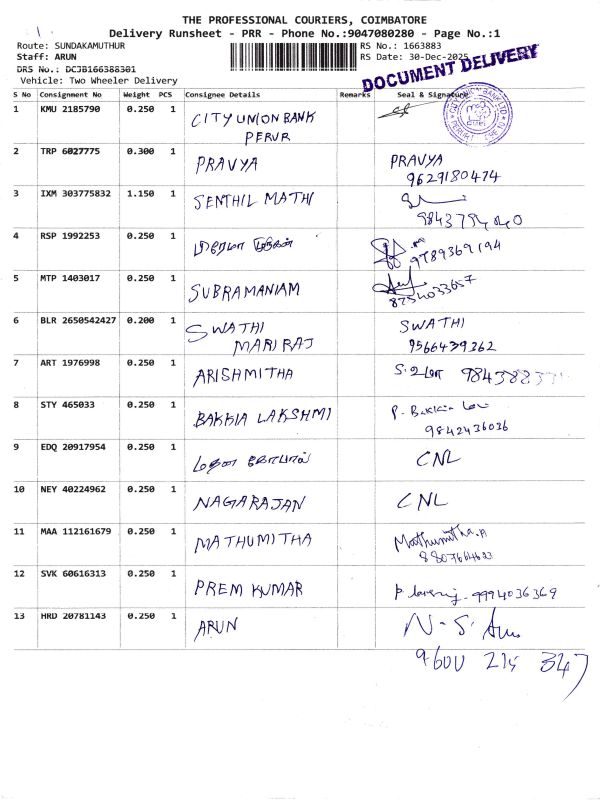 THE PROFESSIONAL COURIERS, COIMBATORE
Delivery Runsheet - PRR - Phone No.:9047080280 - Page No.:1
Route: SUNDAKAMUTHUR
RS No.: 1663883
Staff: ARUN
RS Date: 30-Dec-2025
DRS No.: DCJB166388301
DOCUMENT DELIVERY
Vehicle: Two Wheeler Delivery
S No Consignment No Weight PCS Consignee Details Remarks Seal & Signature
1 KMU 2185790 0.250 1 CITY UNION BANK
PERUR
2 TRP 6027775 0.300 1 PRAVYA PRAVYA
9629180474
3 IXM 303775832 1.150 1 SENTHIL MATHI
4 RSP 1992253 0.250 1
9789369194
5 MTP 1403017 0.250 1 SUBRAMANIAM
8754033657
6 BLR 2650542427 0.200 1 SWATHI SWATHI
MARI RAJ 9566439362
7 ART 1976998 0.250 1 ARISHMITHA S. உமா
8 STY 465033 0.250 1 BAKKIA LAKSHMI
9842436036
9 EDQ 20917954 0.250 1 CNL
10 NEY 40224962 0.250 1 NAGARAJAN CNL
11 MAA 112161679 0.250 1 MATHUMITHA Mathumitha.A
8807664633
12 SVK 60616313 0.250 1 PREM KUMAR 9994036369
13 HRD 20781143 0.250 1 ARUN N-S. Arun
9600 215 347